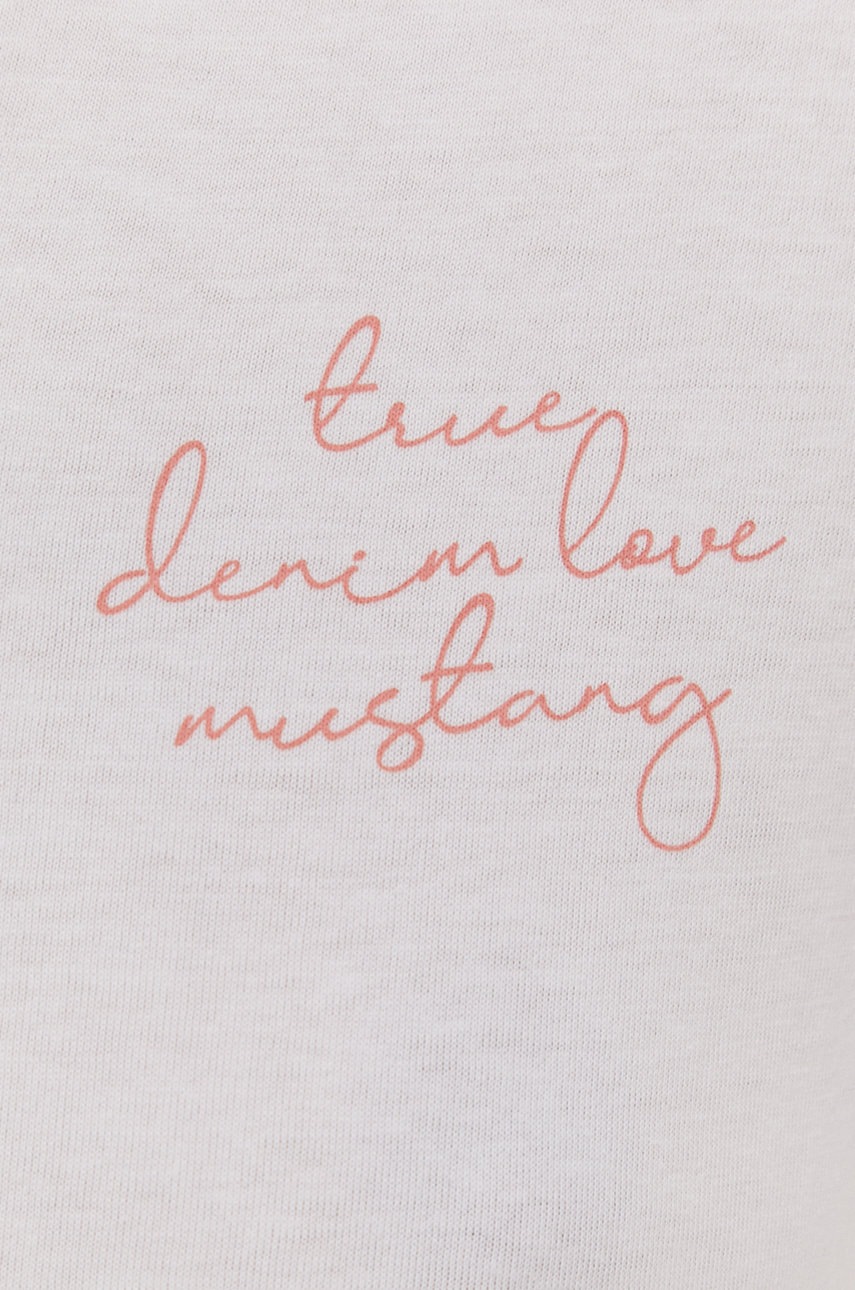 true
denim love
mustang